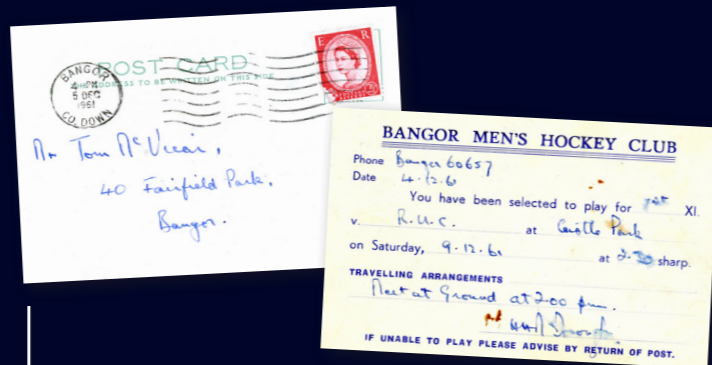 POST CARD
THE ADDRESS TO BE WRITTEN ON THIS SIDE
E R
BANGOR
4 PM
5 DEC
1961
CO. DOWN
Mr Tom McVicar,
40 Fairfield Park,
Bangor.
BANGOR MEN'S HOCKEY CLUB
Phone Bangor 60657
Date 4.12.61
You have been selected to play for 1st XI.
v. R.U.C. at Castle Park
on Saturday, 9.12.61 at 2.30 sharp.
TRAVELLING ARRANGEMENTS
Meet at Ground at 2.00 p.m.
IF UNABLE TO PLAY PLEASE ADVISE BY RETURN OF POST.